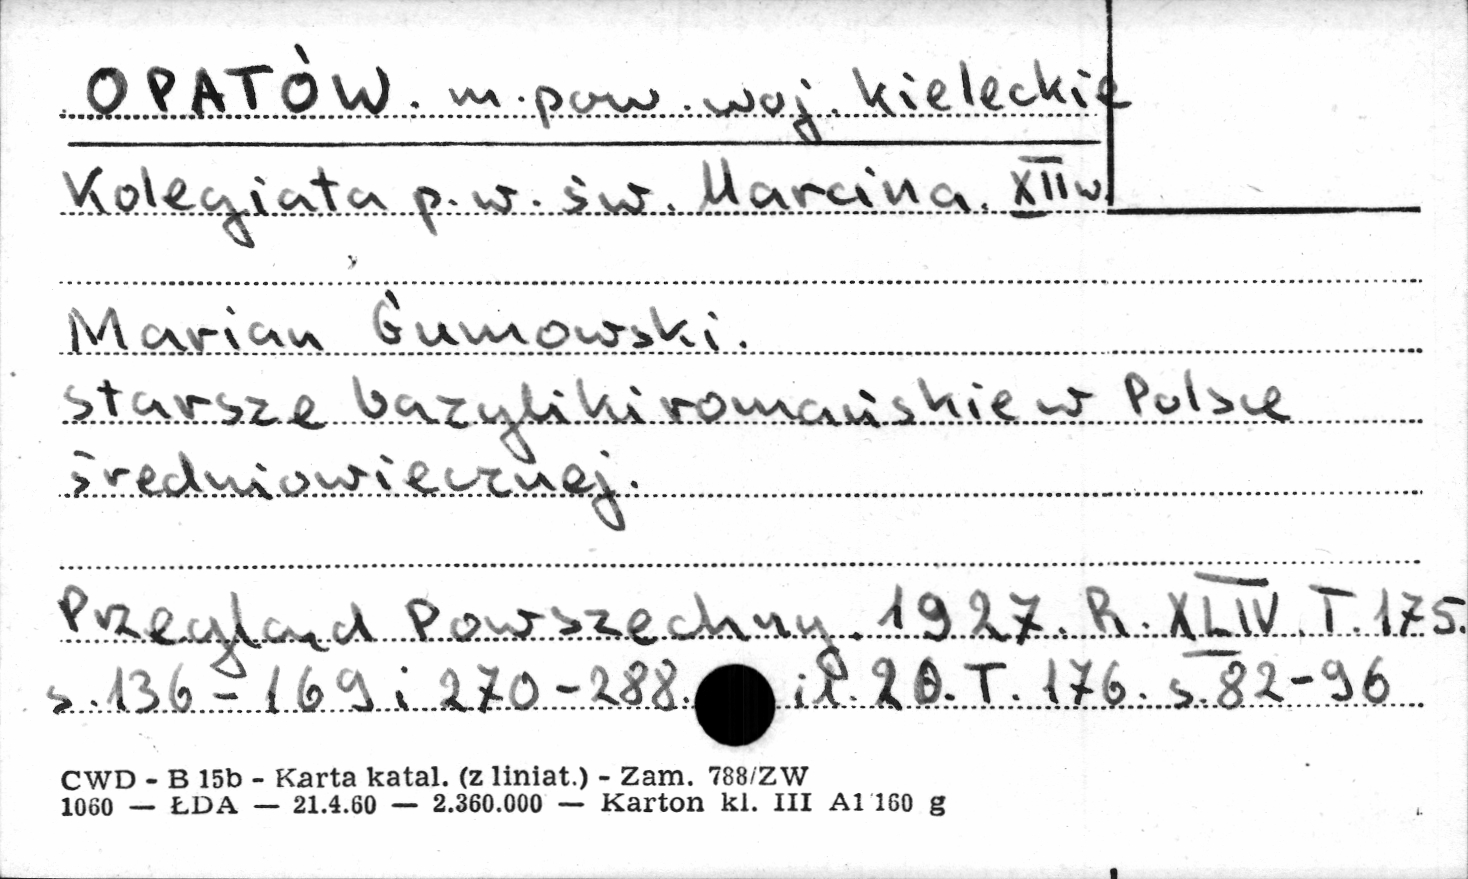 OPATÓW. m. pow. woj. kieleckie
Kolegiata p.w. św. Marcina. XII w.
Marian Gumowski.
starsze bazyliki romańskie w Polsce
średniowiecznej.
Przegląd Powszechny. 1927. R. XLIV. T. 175.
s. 136-169 i 270-288. il. 20. T. 176. s. 82-96
CWD - B 15b - Karta katal. (z liniat.) - Zam. 788/ZW
1060 — ŁDA — 21.4.60 — 2.360.000 — Karton kl. III A1 160 g